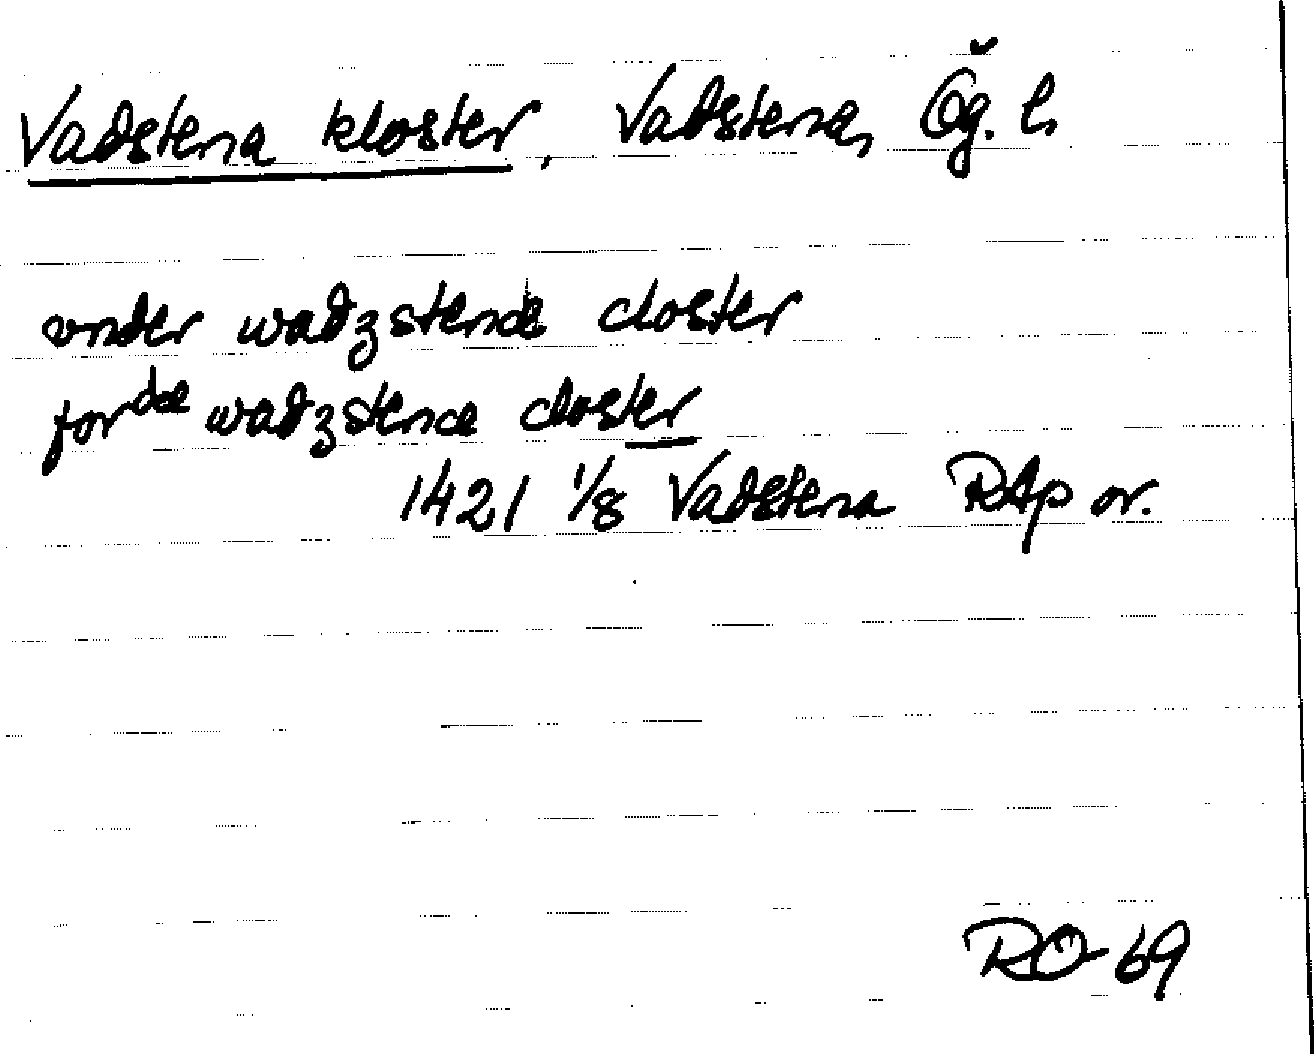 Vadstena kloster, Vadstena, Ög. l.
vnder wadzstenæ closter
for dæ wadzstenæ closter
1421 1/8 Vadstena RAp or.
RO 69